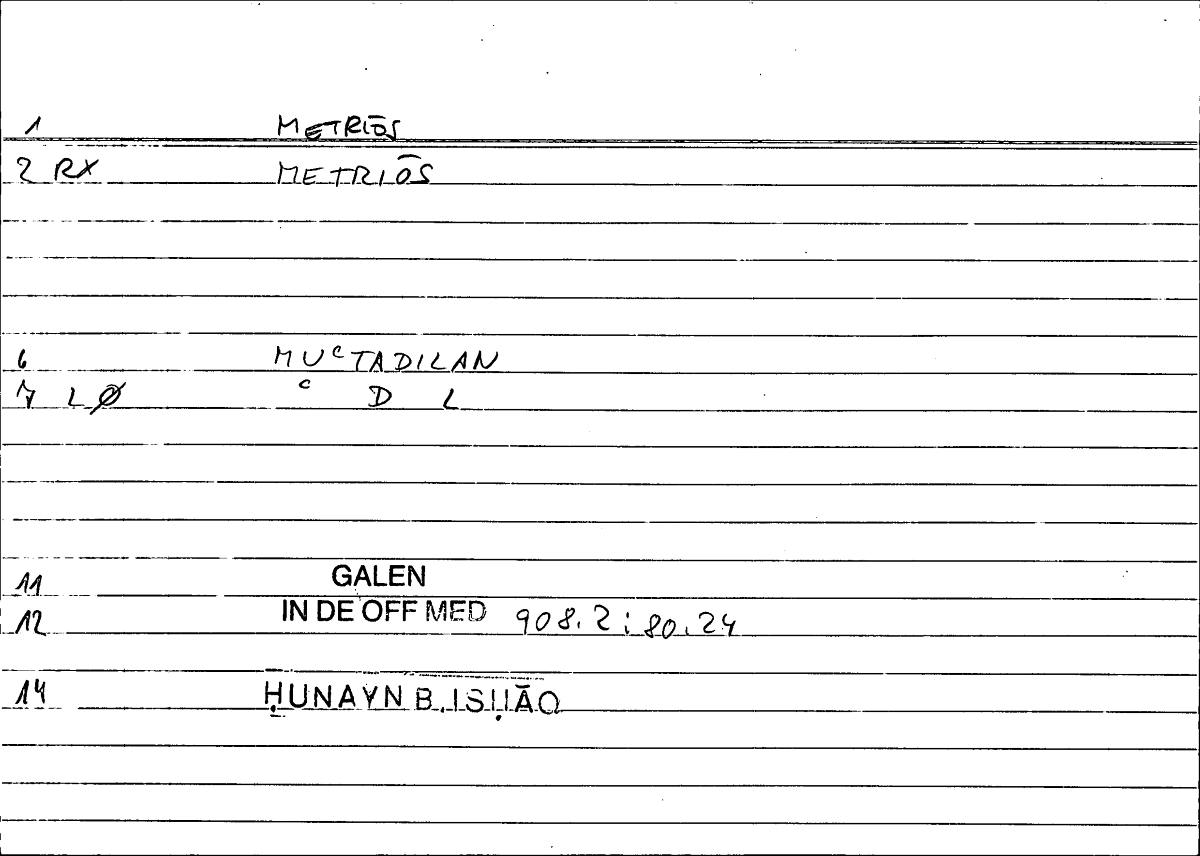 1 METRIŌS
2 RX METRIŌS
6 MUᶜTADILAN
7 LØ ᶜ D L
11 GALEN
12 IN DE OFF MED 908.2 ; 80.24
14 ḤUNAYN B. ISḤĀQ